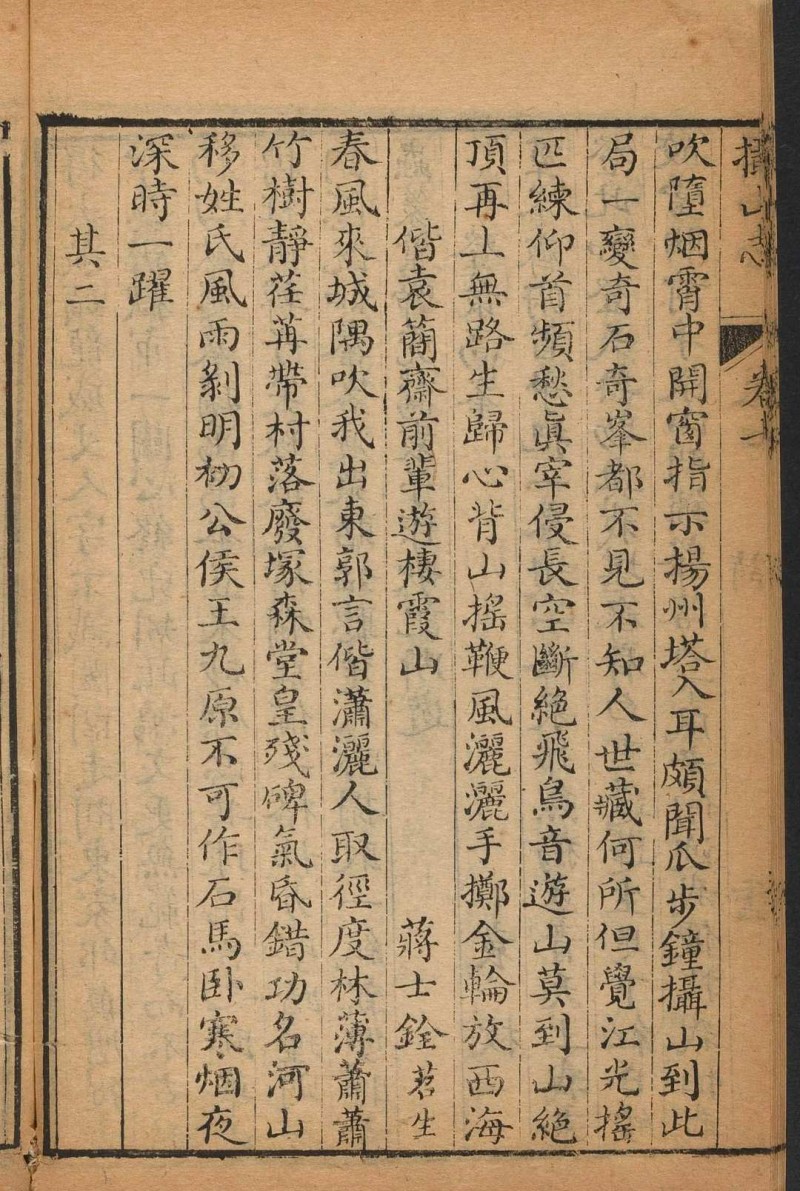 攝山志 卷
吹墮烟霄中開窗指示揚州塔入耳頗聞瓜步鐘攝山到此
局一變奇石奇峯都不見不知人世藏何所但覺江光搖
匹練仰首頻愁眞宰侵長空斷絕飛鳥音遊山莫到山絕
頂再上無路生歸心背山搖鞭風灑灑手擲金輪放西海
偕袁蕳齋前輩遊棲霞山 蔣士銓 苕生
春風來城隅吹我出東郭言偕瀟灑人取徑度林薄蕭蕭
竹樹靜荏苒帶村落廢塚森堂皇殘碑氣昏錯功名河山
移姓氏風雨剝明初公侯王九原不可作石馬卧寒烟夜
深時一躍
其二